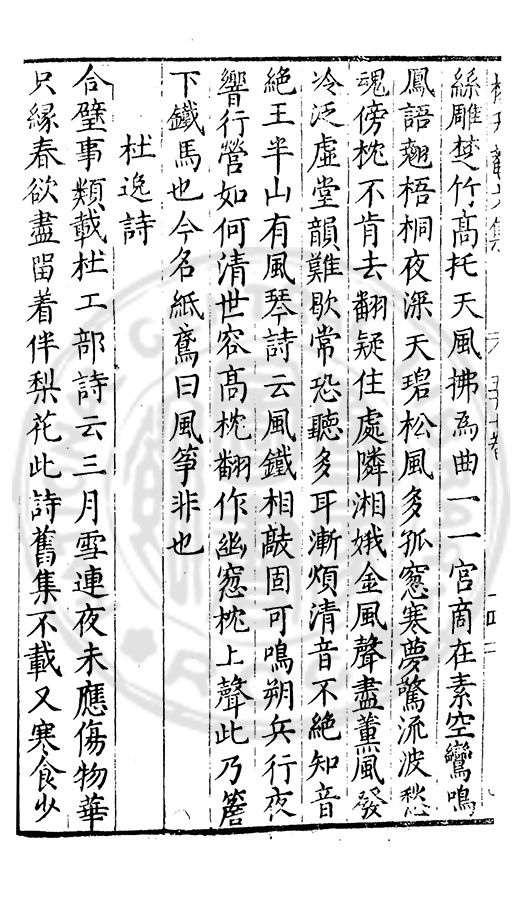 絲雕楚竹高托天風拂爲曲一一宮商在素空鸞鳴
鳳語翹梧桐夜深天碧松風多孤窻寒夢驚流波愁
魂傍枕不肯去翻疑住處隣湘娥金風聲盡薰風發
冷泛虛堂韻難歇常恐聽多耳漸煩清音不絕知音
絕王半山有風琴詩云風鐵相敲固可鳴朔兵行夜
響行營如何清世容高枕翻作幽窻枕上聲此乃簷
下鐵馬也今名紙鳶曰風箏非也
杜逸詩
合璧事類載杜工部詩云三月雪連夜未應傷物華
只緣春欲盡留着伴梨花此詩舊集不載又寒食少